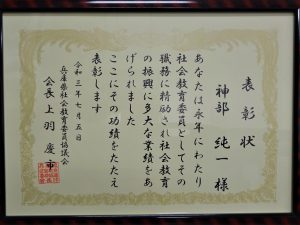 表彰状
神部 純一 様
あなたは永年にわたり
社会教育委員としてその
職務に精励され社会教育
の振興に多大な業績をあ
げられました
ここにその功績をたたえ
表彰します
令和三年七月五日
兵庫県社会教育委員協議会
会長 上羽 慶市